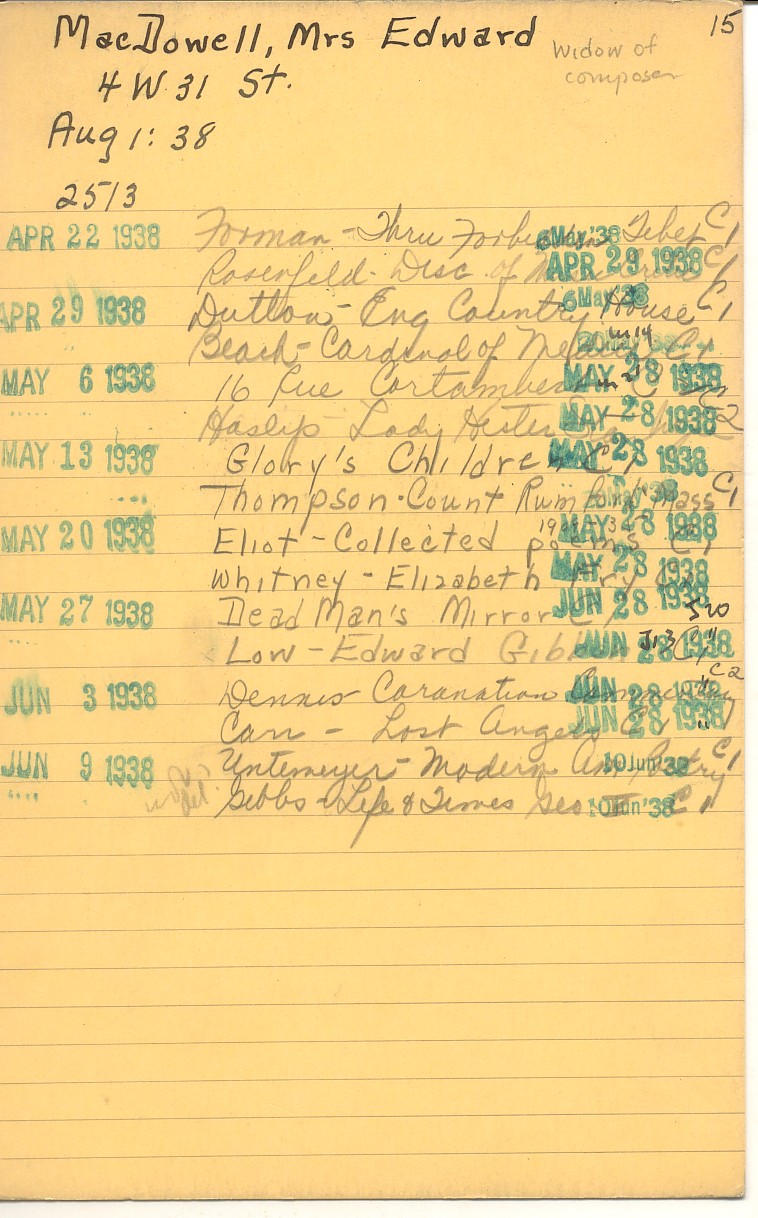 15
MacDowell, Mrs Edward
widow of
composer
4 W 31 St.
Aug 1: 38
2513
APR 22 1938 Forman - Thru Forbidden Tibet C1 6May'38
Rosenfeld - Disc. of C1 APR 29 1938
APR 29 1938 Dutton - Eng Country House C1 6May'38
Beach - Cardinal of C1
MAY 6 1938 16 Rue MAY 28 1938
Haslip - Lady Hester MAY 28 1938
MAY 13 1938 Glory's Children C1 MAY 28 1938
Thompson - Count Rumford Mass C1
MAY 20 1938 Eliot - Collected poems C1 MAY 28 1938
Whitney - Elizabeth MAY 28 1938
MAY 27 1938 Dead Man's Mirror C1 JUN 28 1938
Low - Edward Gibbon C1 JUN 28 1938
JUN 3 1938 Dennis - Coronation C2 JUN 28 1938
Carr - Lost Angels C1 JUN 28 1938
JUN 9 1938 Untemeyer - Modern Am Poetry C1 10Jun'38
Gibbs - Life & Times Geo C1 10Jun'38